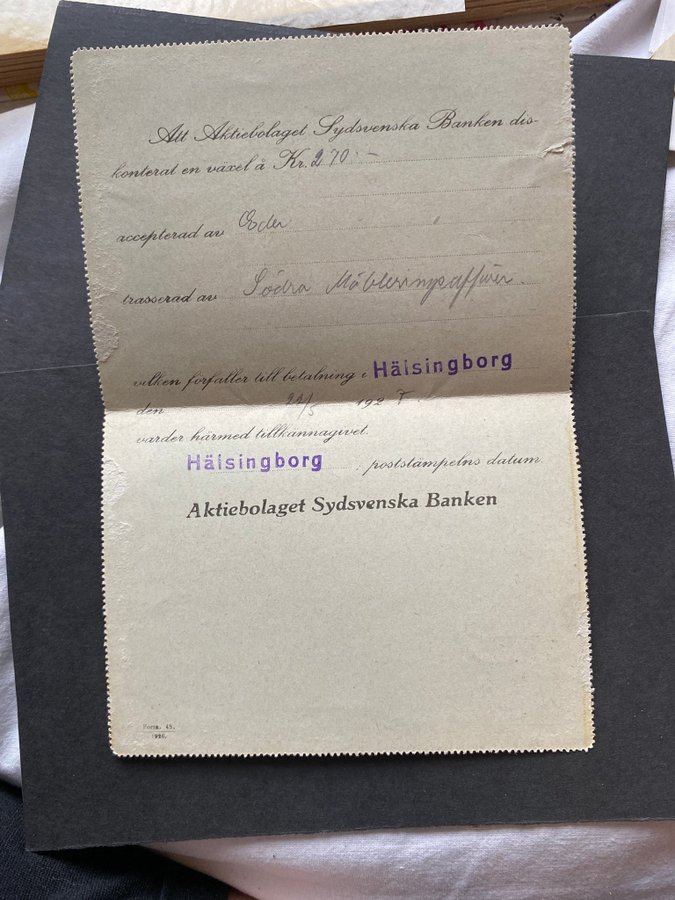 Att Aktiebolaget Sydsvenska Banken dis-
konterat en växel å Kr. 270:-
accepterad av Eder
trasserad av Södra Möbleringsaffären.
vilken förfaller till betalning i Hälsingborg
den 24/5 1927
varder härmed tillkännagivet.
Hälsingborg poststämpelns datum.
Aktiebolaget Sydsvenska Banken
Form. 45.
1926.